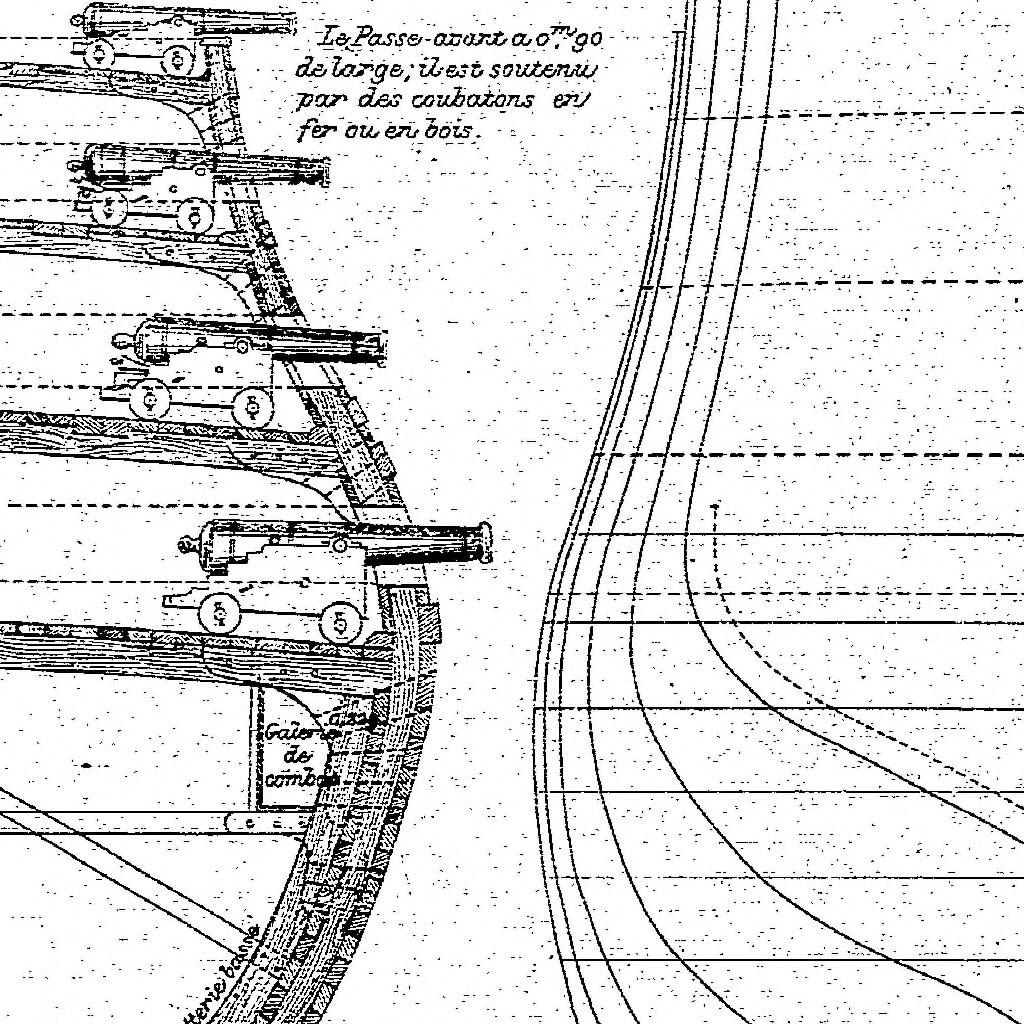 Le Passe-avant a 0ᵐ,90
de large; il est soutenu
par des coubatons en
fer ou en bois.
Galerie
de
combat